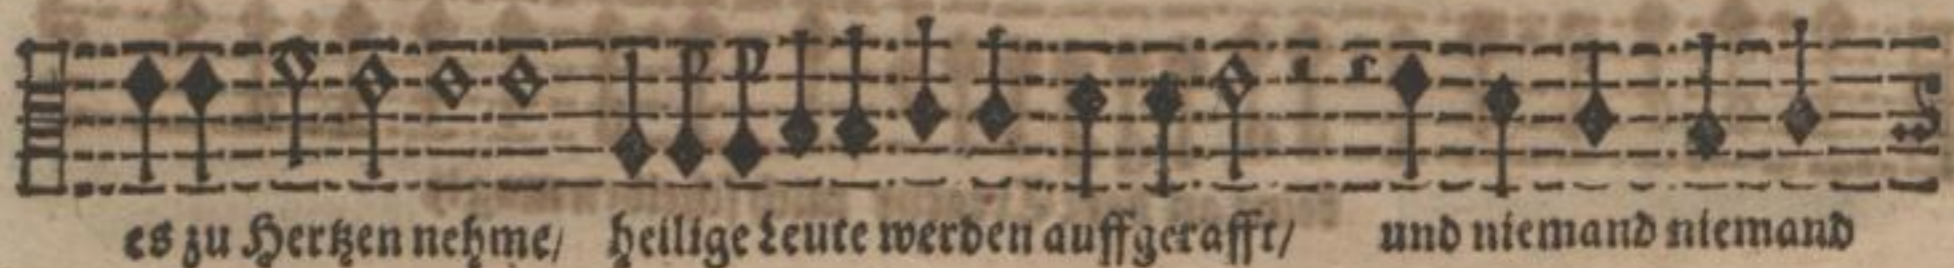 es zu Hertzen nehme/ heilige Leute werden auffgerafft/ und niemand niemand